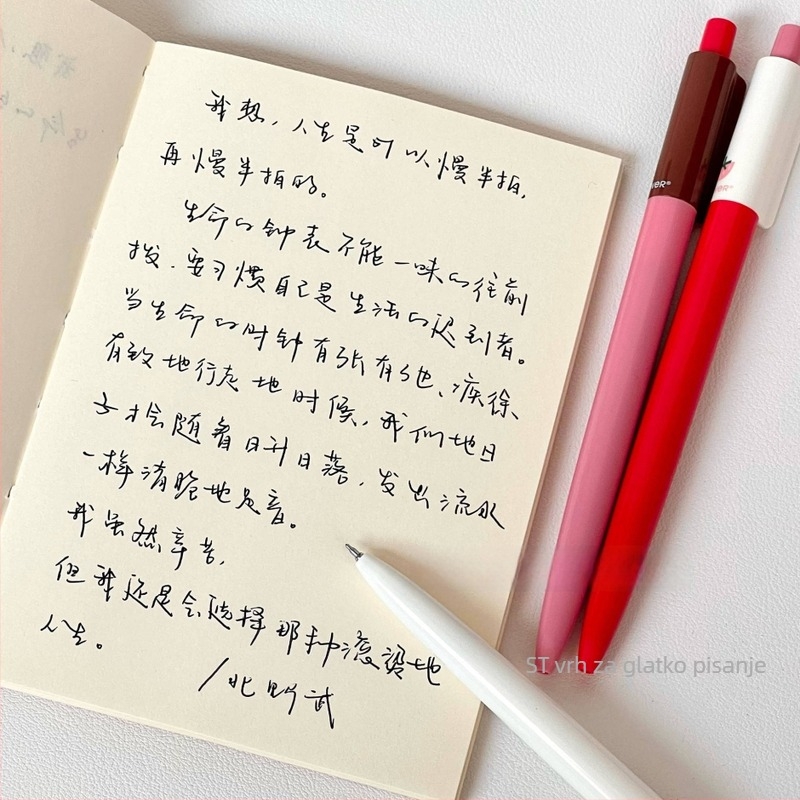 我想，人生是可以慢半拍，
再慢半拍的。
生命的钟表不能一味的往前
拨，要习惯自己是生活的迟到者。
当生命的时钟有张有弛、疾徐、
有致地行走地时候，我们地日
子才会随着日升日落，发出流水
一样清脆地足音。
我虽然辛苦，
但我还是会选择那种滚烫地
人生。
/北野武
ST vrh za glatko pisanje